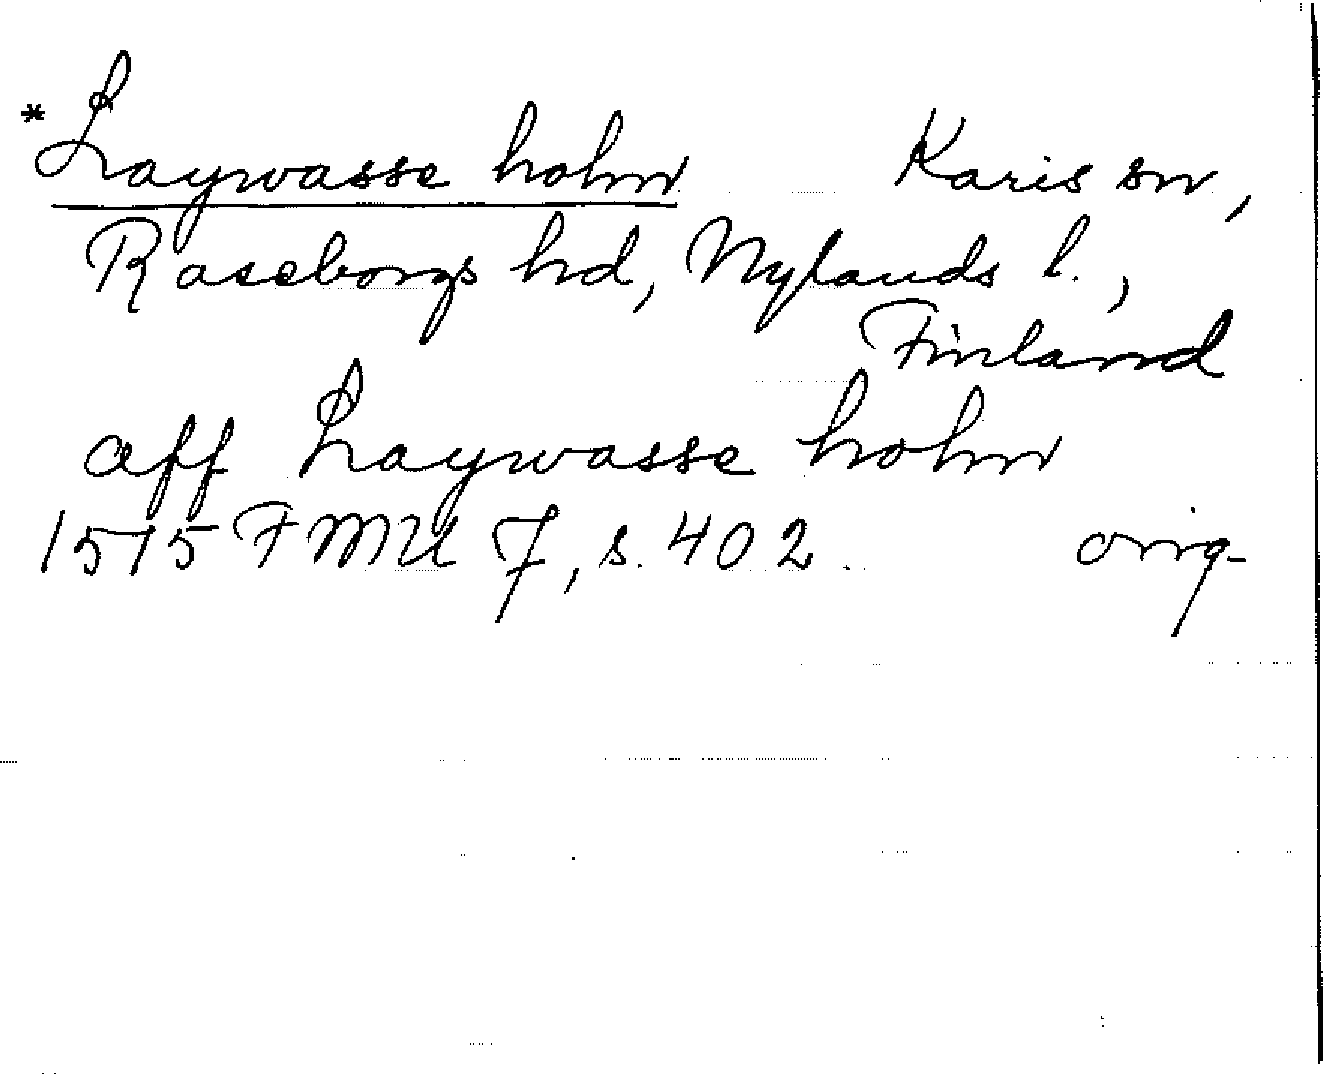 *Laywasse holm Karis sn,
Raseborgs hd, Nylands l.,
Finland
aff Laywasse holm
1515 FMU 7, s. 402. orig.